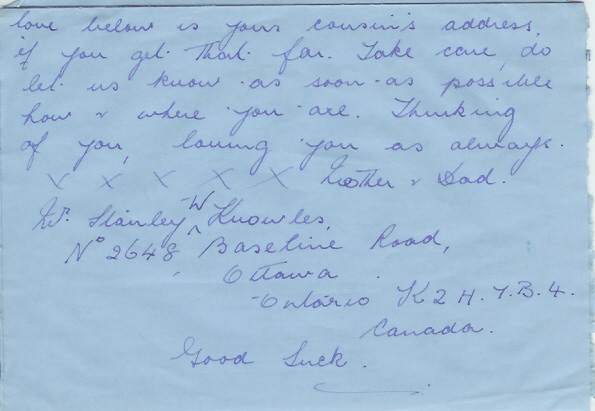 love below is your cousin's address,
if you get that far. Take care, do
let us know as soon as possible
how & where you are. Thinking
of you, loving you as always.
x x x x x Mother & Dad.
Mr. Stanley W Knowles,
No 2648 Baseline Road,
Ottawa.
Ontario K2H.7.B.4.
Canada.
Good Luck.